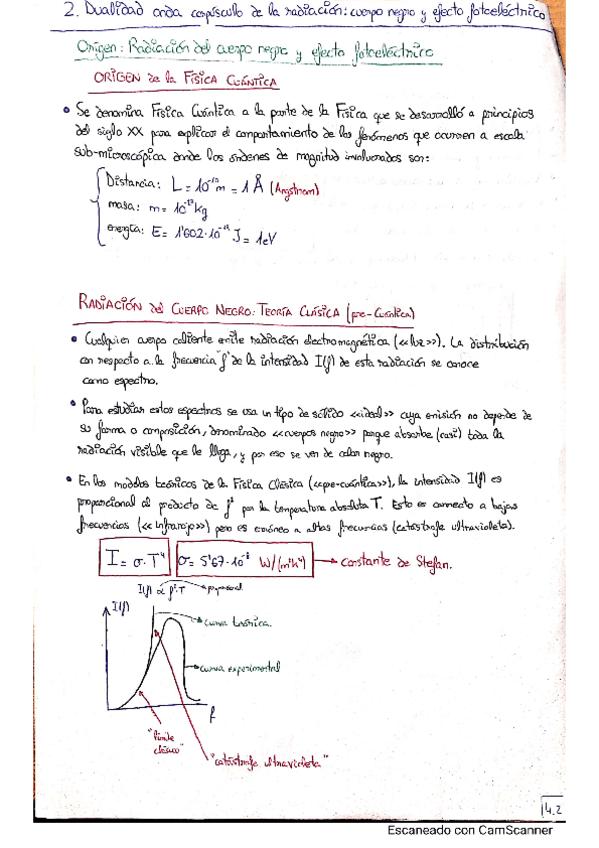 2. Dualidad onda corpúsculo de la radiación: cuerpo negro y efecto fotoeléctrico
Origen: Radiación del cuerpo negro y efecto fotoeléctrico
ORIGEN de la FÍSICA CUÁNTICA
• Se denomina Física Cuántica a la parte de la Física que se desarrolló a principios
del siglo XX para explicar el comportamiento de los fenómenos que ocurren a escala
sub-microscópica donde los órdenes de magnitud involucrados son:
Distancia: L = 10⁻¹⁰m = 1 Å (Angstrom)
masa: m = kg
energía: E = 1'602·10⁻¹⁹ J = 1eV
RADIACIÓN del CUERPO NEGRO: TEORÍA CLÁSICA (pre-Cuántica)
• Cualquier cuerpo caliente emite radiación electromagnética (<<luz>>). La distribución
con respecto a la frecuencia f de la intensidad I(f) de esta radiación se conoce
como espectro.
• Para estudiar estos espectros se usa un tipo de sólido <<ideal>> cuya emisión no depende de
su forma o composición, denominado <<cuerpos negro>> porque absorbe (casi) toda la
radiación visible que le llega, y por eso se ven de color negro.
• En los modelos teóricos de la Física Clásica (<<pre-cuántica>>), la intensidad I(f) es
proporcional al producto de f² por la temperatura absoluta T. Esto es correcto a bajas
frecuencias (<<infrarrojo>>) pero es erróneo a altas frecuencias (catástrofe ultravioleta).
I = σ·T⁴ σ = 5'67·10⁻⁸ W/(m²K⁴) → constante de Stefan.
I(f) ∝ f²·T → proporcional
I(f)
curva teórica.
curva experimental
f
"límite
clásico"
"catástrofe ultravioleta"
14.2
Escaneado con CamScanner